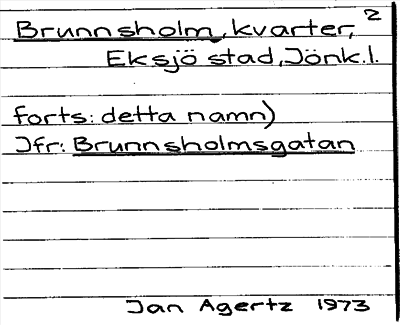 Brunnsholm, kvarter, 2
Eksjö stad, Jönk.l.
forts: detta namn)
Jfr: Brunnsholmsgatan
Jan Agertz 1973